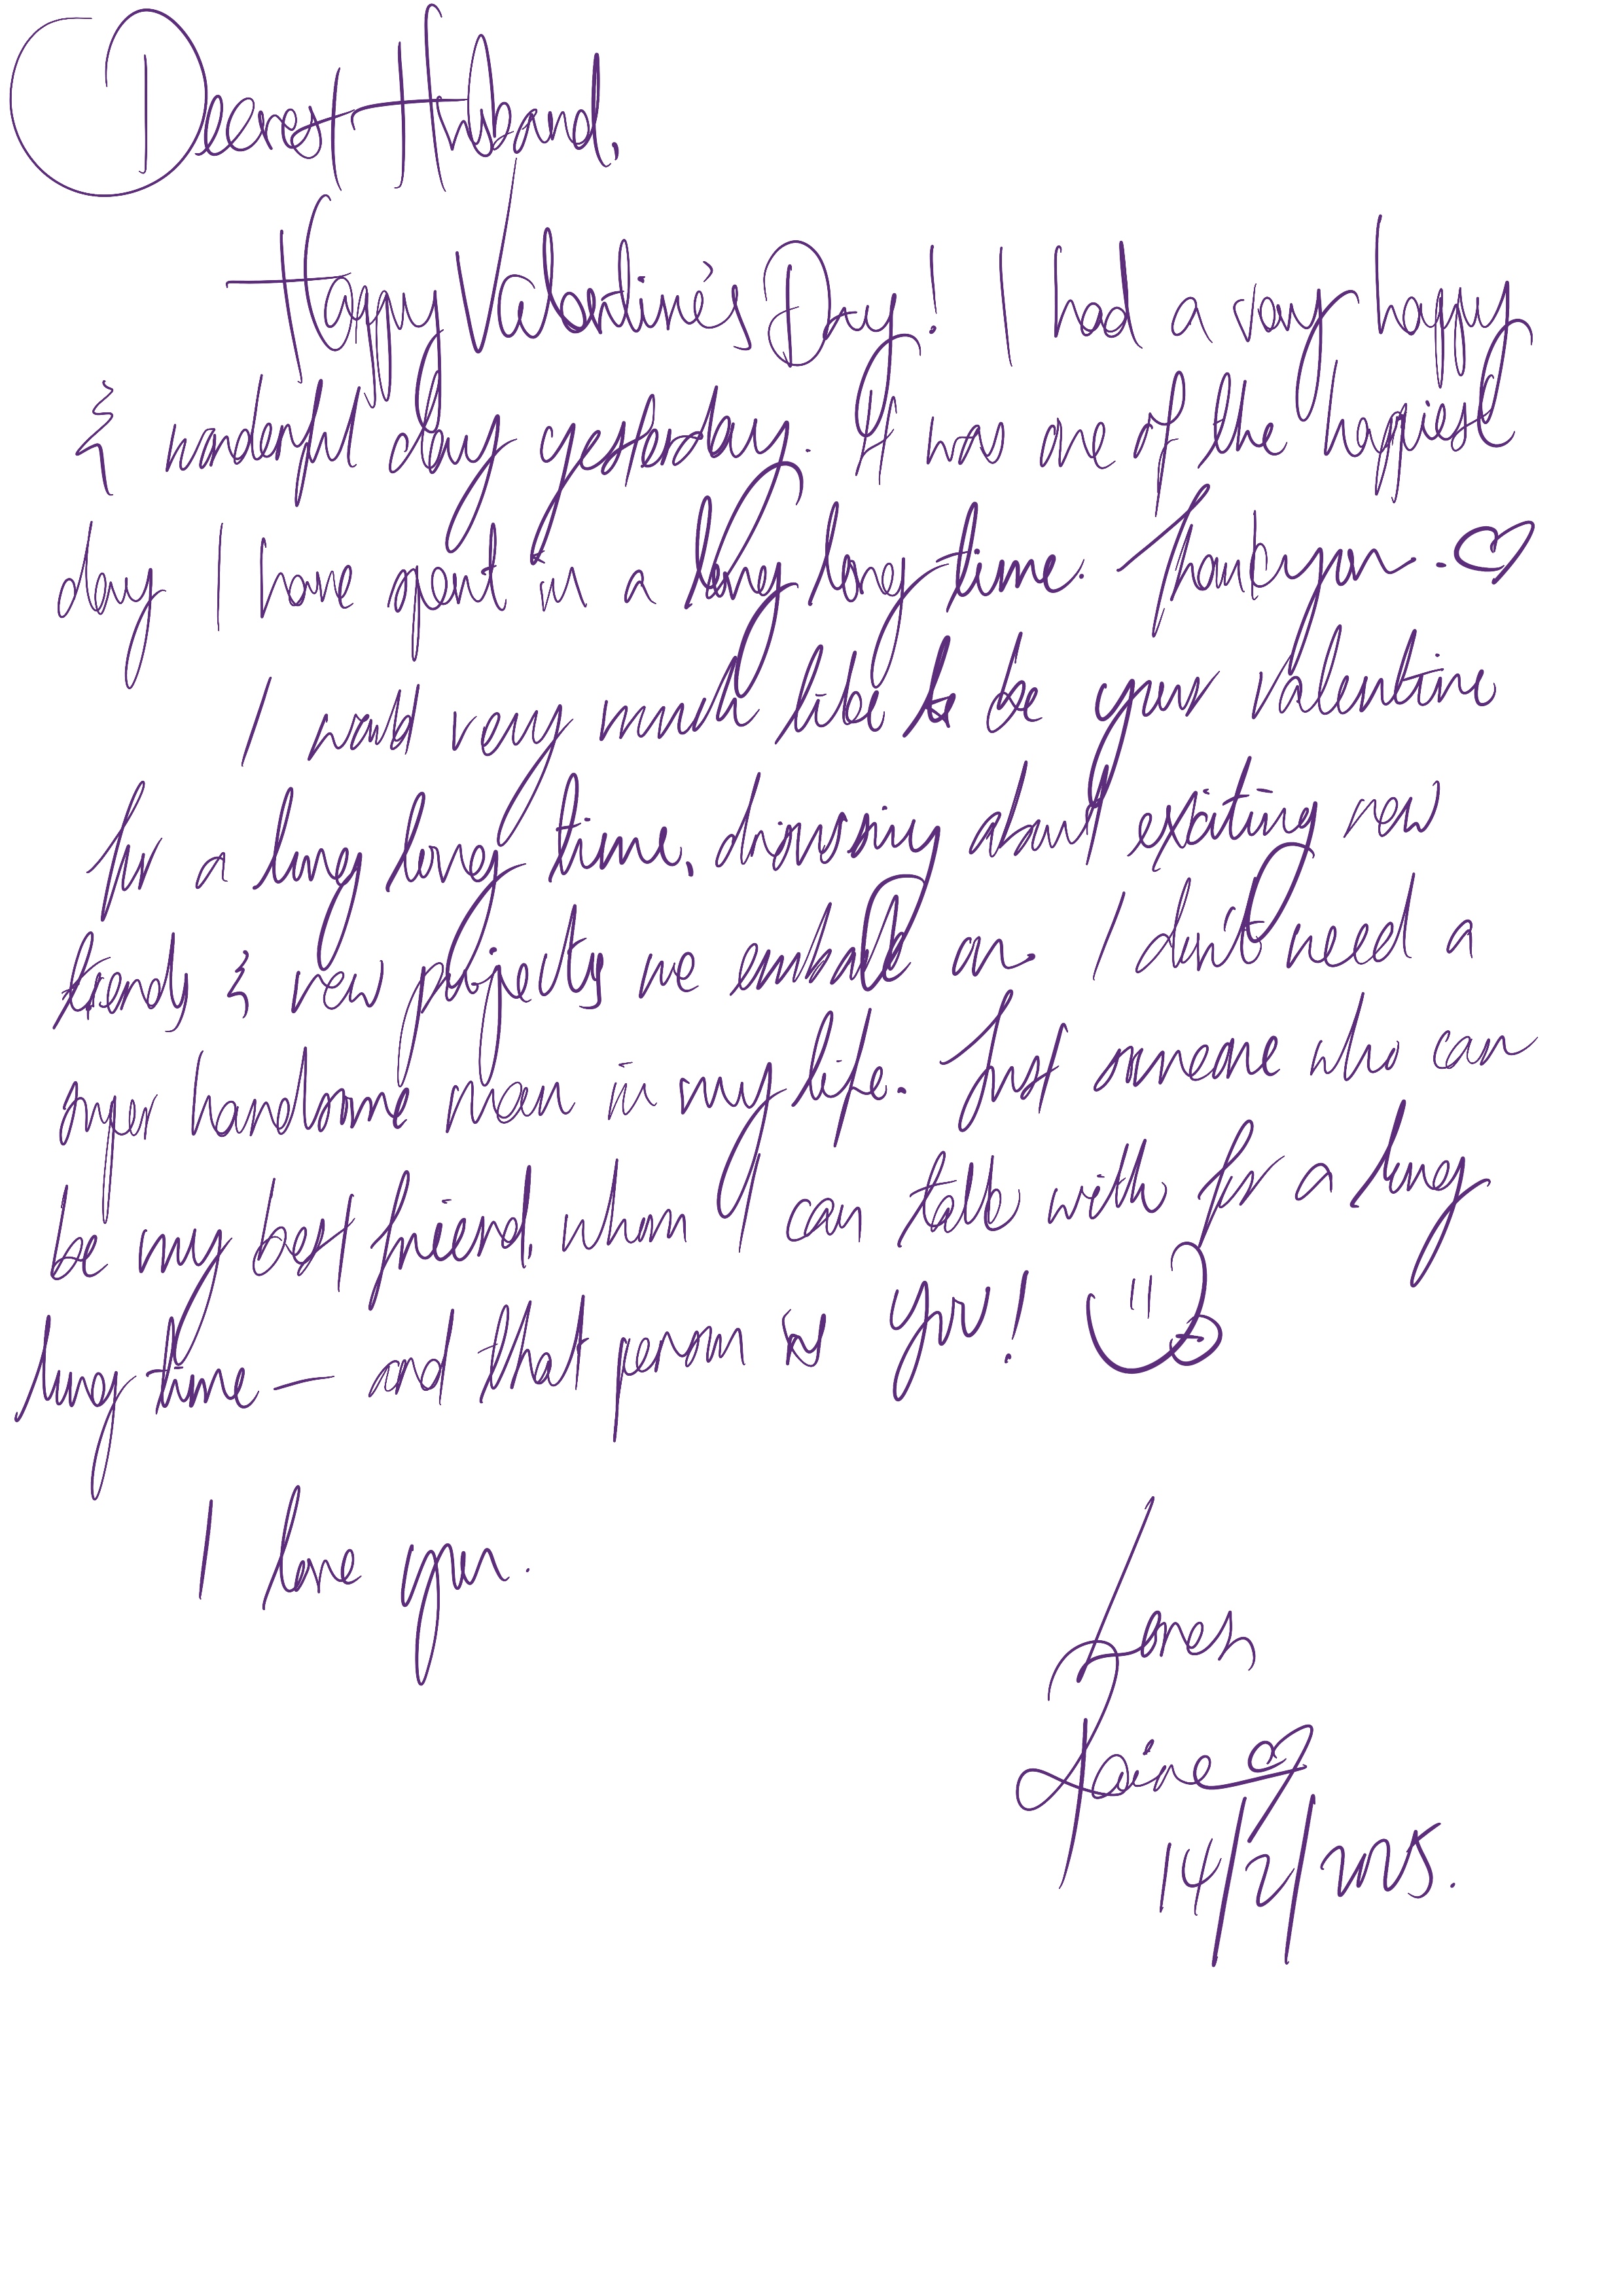 Dearest Husband,
Happy Valentine's Day! I had a very happy
& wonderful day yesterday. It was one of the happiest
day I have spent in a long long time. Thank you. ♡
I would very much like to be your Valentine
for a long long time, discussing about exciting new
trends & new projects we embark on. I don't need a
super handsome man in my life. Just someone who can
be my best friend, whom I can talk with for a long
long time — and that person is you!
I love you.
Loves,
Raine ♡
14/2/2025.